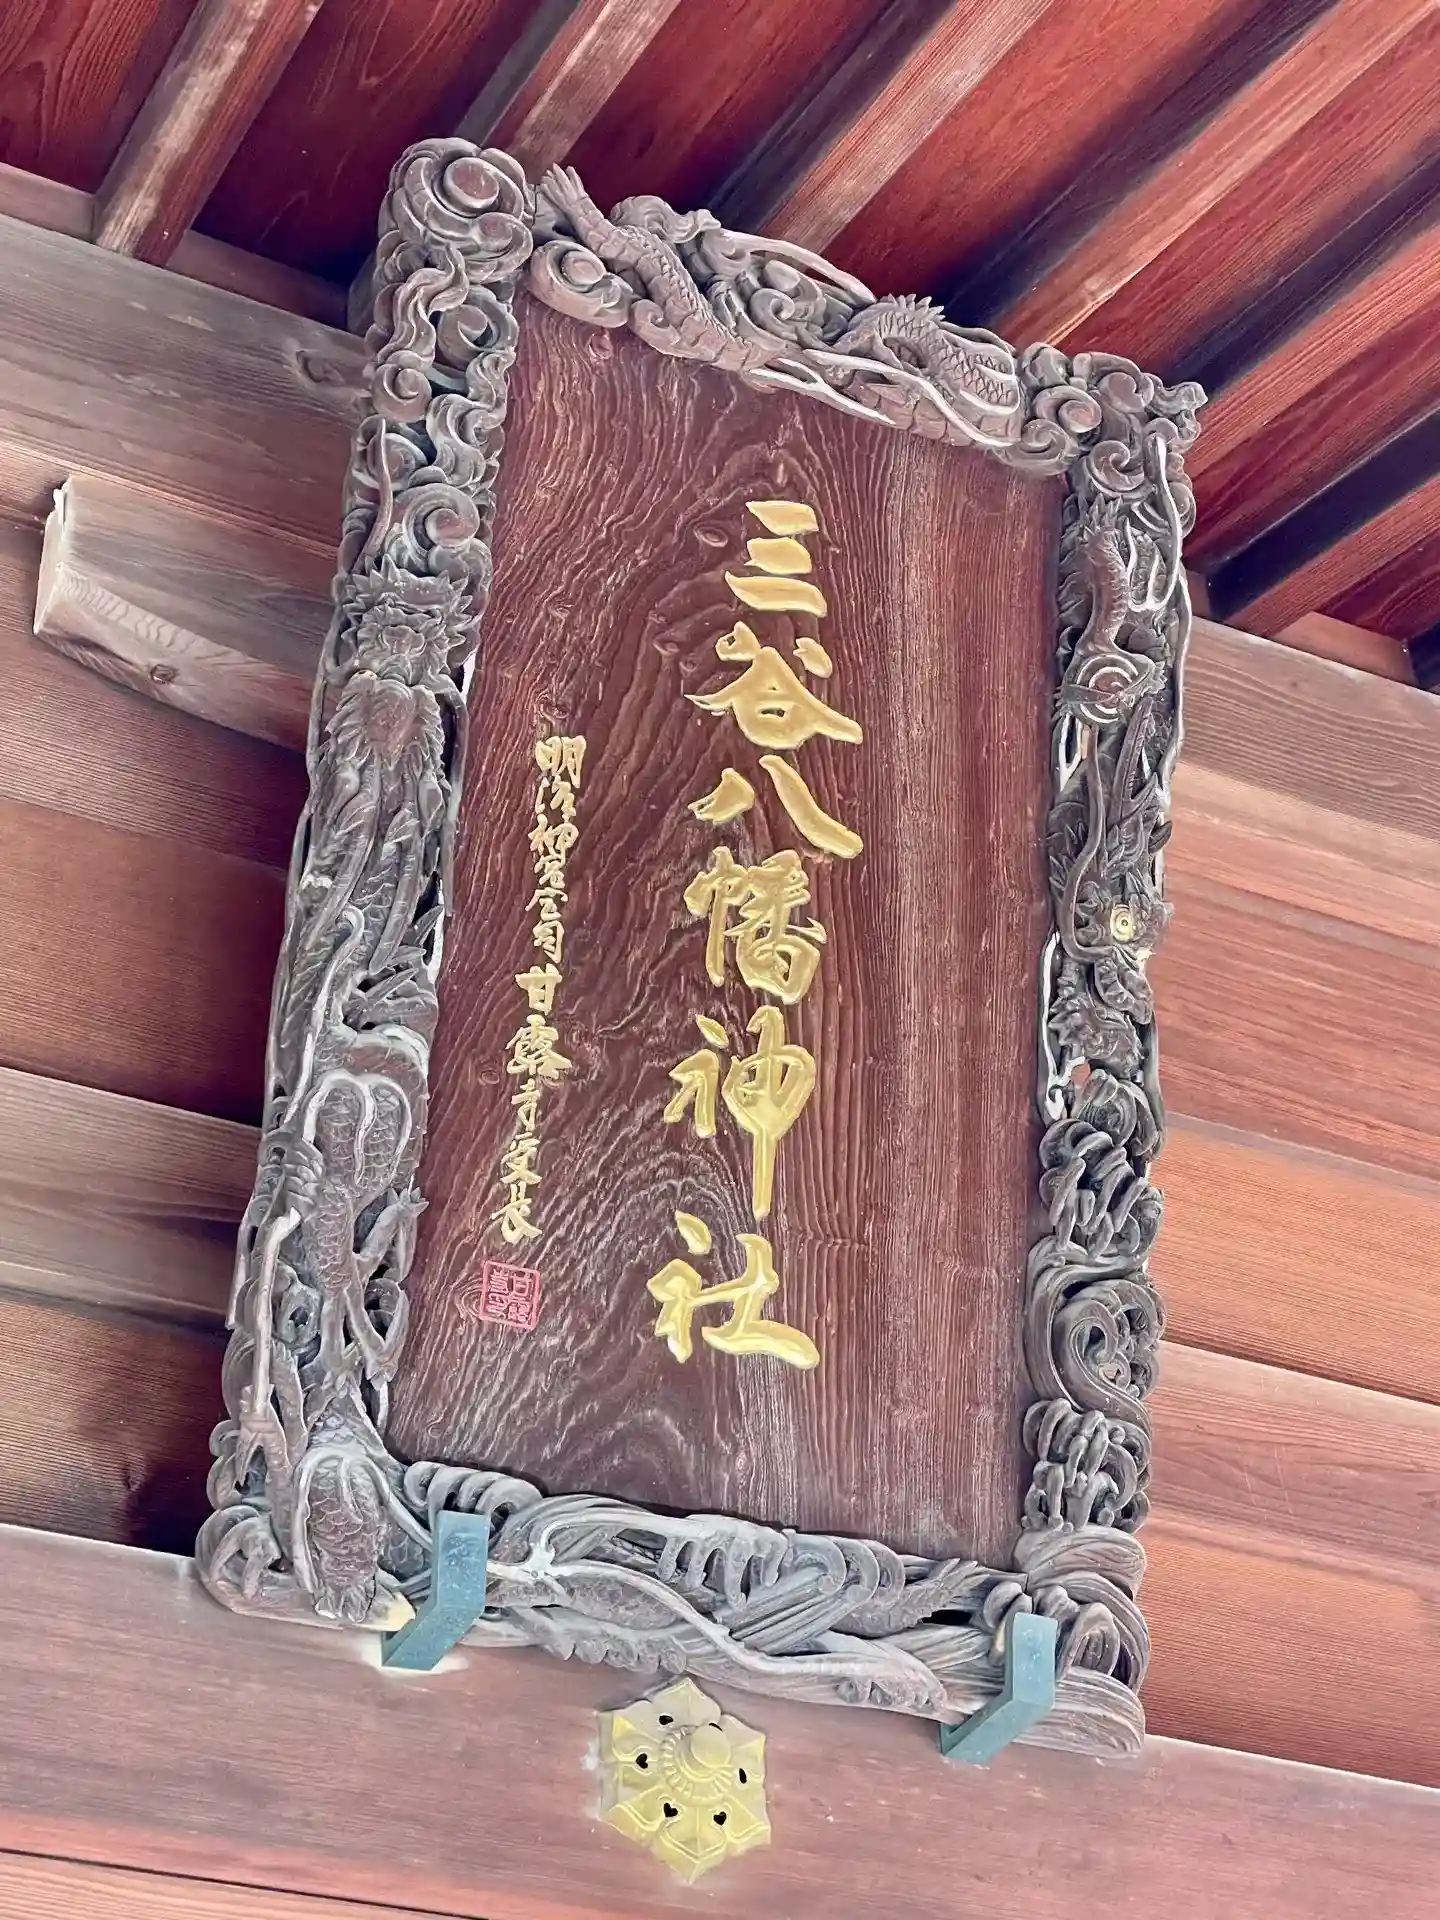 三谷八幡神社
明治神宮宮司甘露寺受長